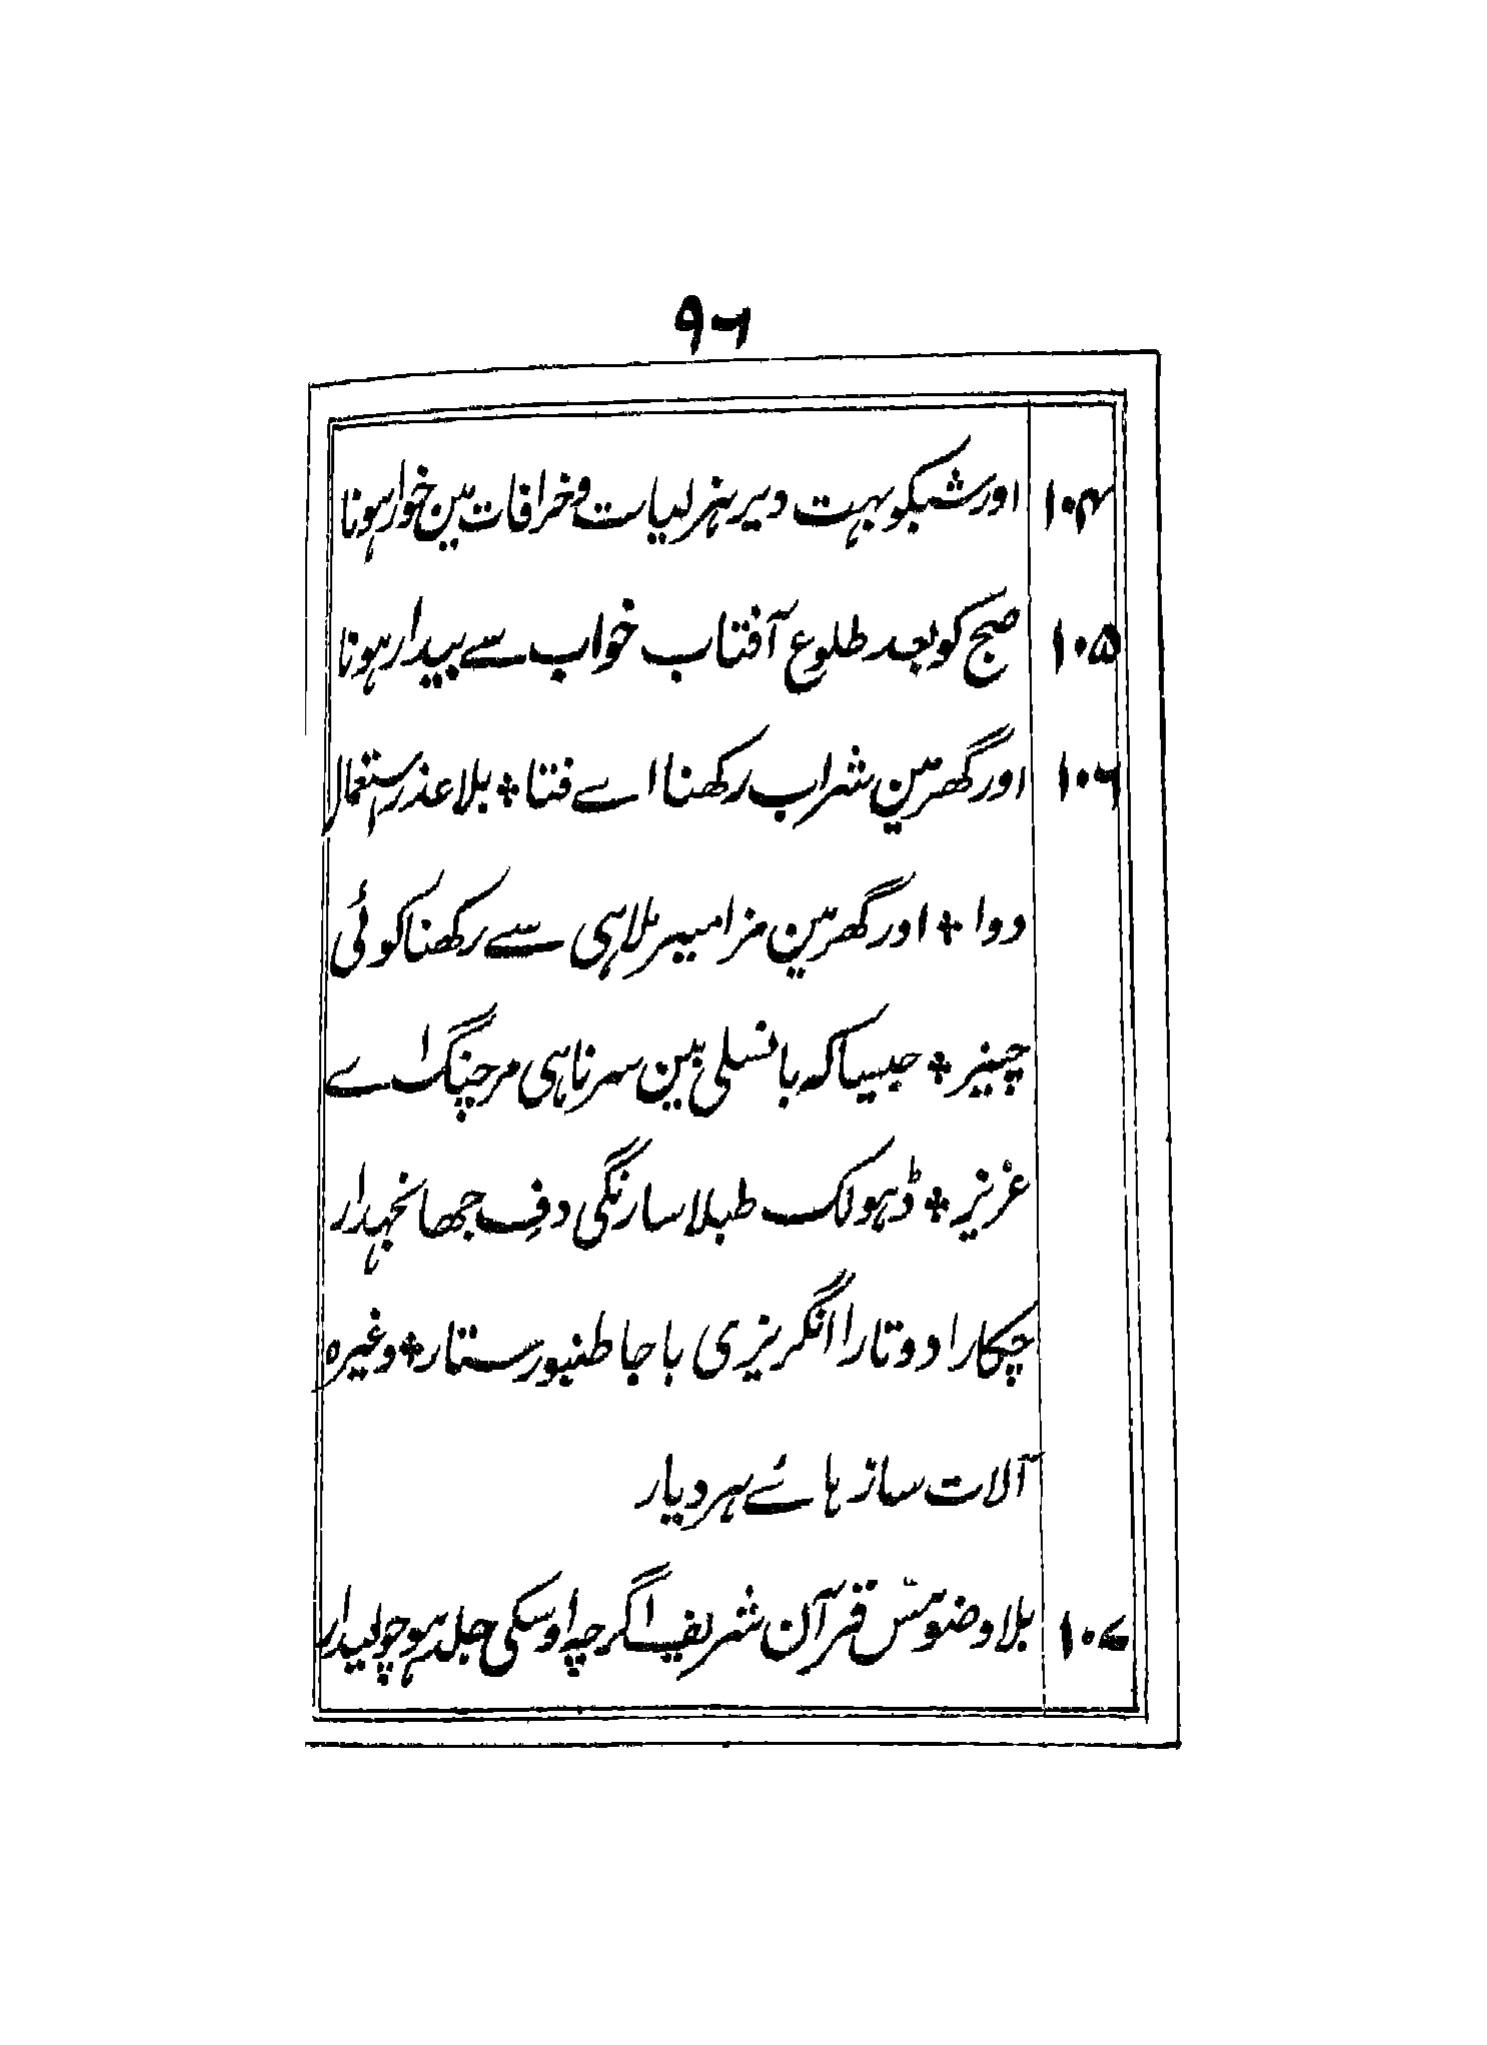 ۹۶
۱۰۴ اور شبکو بہت دیر ہزلیات و خرافات مین خوار ہونا
۱۰۵ صبح کو بعد طلوع آفتاب خواب سے بیدار ہونا
۱۰۶ اور گھر مین شراب رکھنا اے فتا ٭ بلا عذر استعمال
دوا ٭ اور گھر مین مزامیر ملاہی سے رکھنا کوئی
چیز ٭ جیسا کہ بانسلی بین سرناہی مرچنگ اے
عزیز ٭ ڈہولک طبلا سارنگی دف جھانجہدار
چکارا دوتارا انگریزی باجا طنبور ستار ٭ وغیرہ
آلات ساز ہائے ہر دیار
۱۰۷ بلا وضو مسّ قرآن شریف اگرچہ اوسکی جلد ہو چولیدار